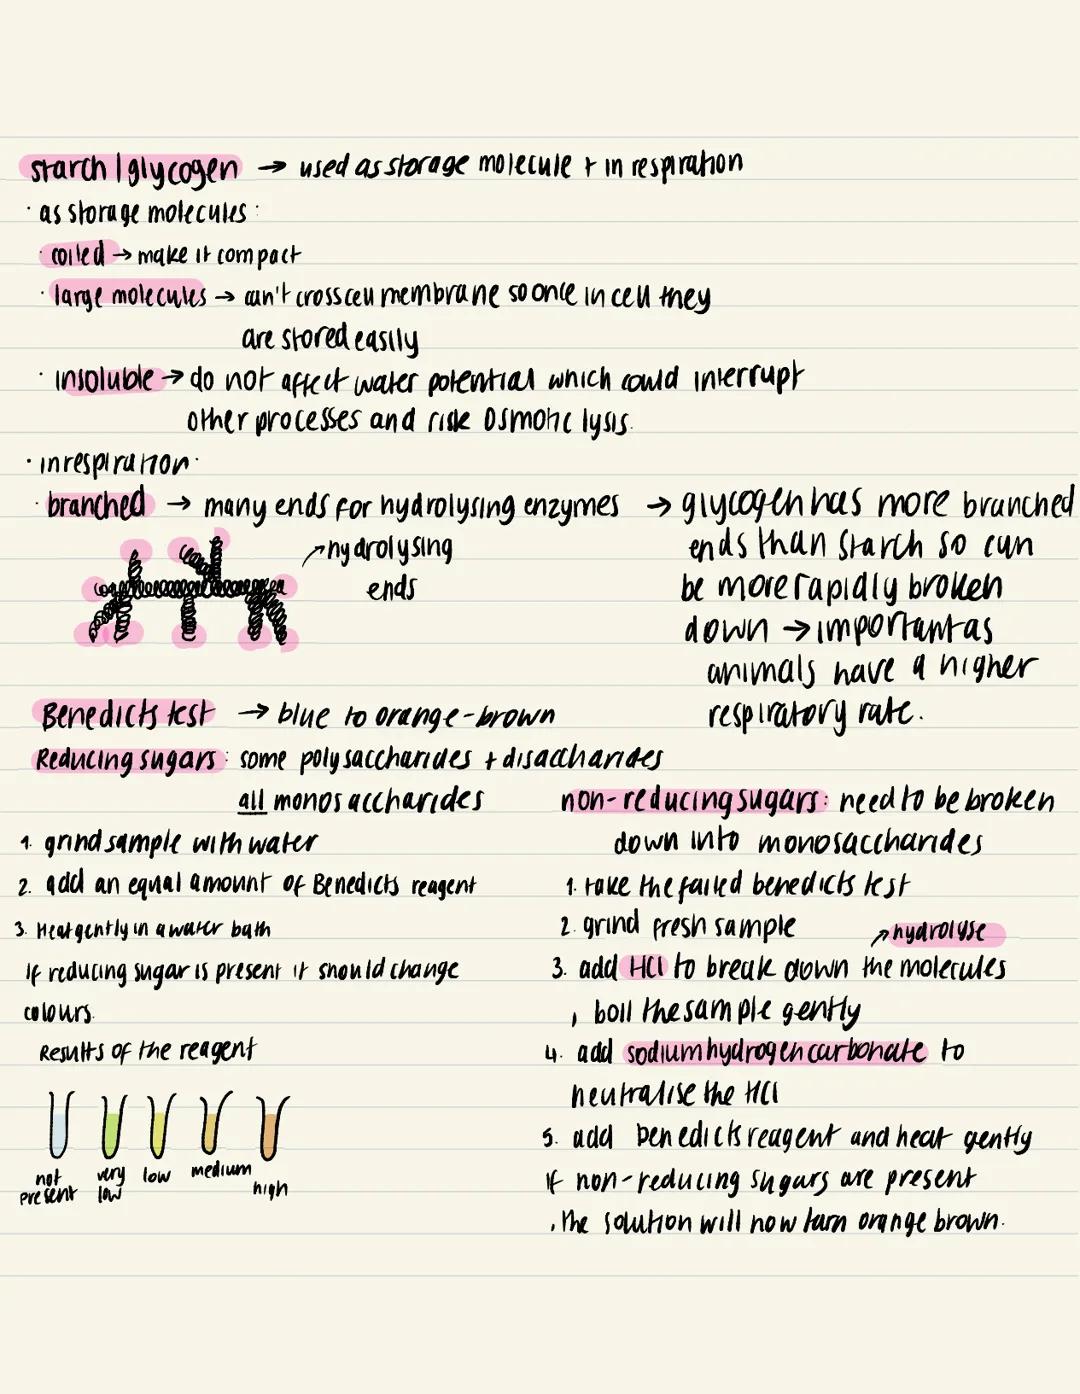 starch/glycogen → used as storage molecule + in respiration
· as storage molecules:
· coiled → make it compact
· large molecules → can't cross cell membrane so once in cell they
are stored easily
· insoluble → do not affect water potential which could interrupt
other processes and risk osmotic lysis.
· in respiration·
· branched → many ends for hydrolysing enzymes → glycogen has more branched
ends than starch so can
be more rapidly broken
down → important as
animals have a higher
respiratory rate.
hydrolysing
ends
Benedicts test → blue to orange-brown
Reducing sugars: some polysaccharides + disaccharides
all monosaccharides
1. grind sample with water
2. add an equal amount of Benedicts reagent
3. Heat gently in a water bath
If reducing sugar is present it should change
colours.
Results of the reagent
not present
very low
low
medium
high
non-reducing sugars: need to be broken
down into monosaccharides
1. take the failed benedicts test
2. grind fresh sample
hydrolyse
3. add HCl to break down the molecules
, boil the sample gently
4. add sodium hydrogen carbonate to
neutralise the HCl
5. add benedicts reagent and heat gently
If non-reducing sugars are present
, the solution will now turn orange brown.